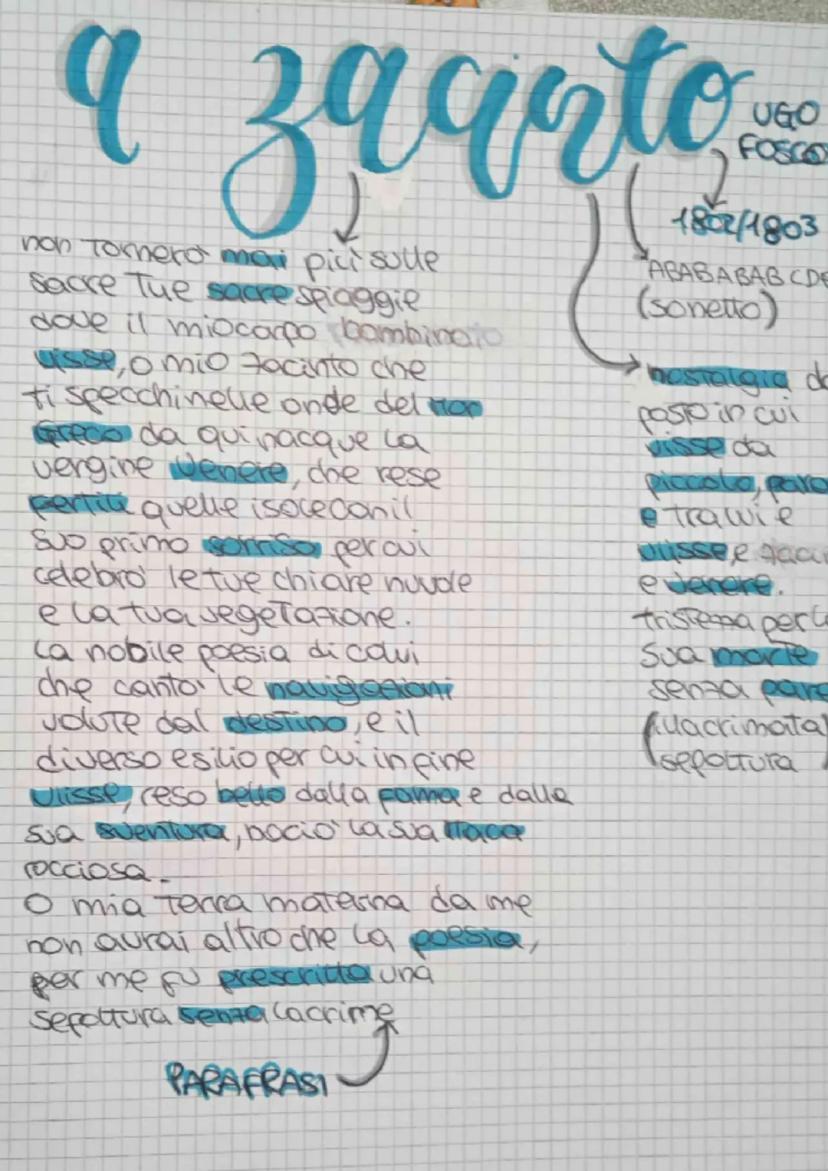 a zacinto
UGO
FOSCO
1802/1803
ABABABAB CDE
(sonetto)
non tornerò mai più sulle
sacre tue sacre spiaggie
dove il mio corpo bambino
visse, o mio zacinto che
ti specchi nelle onde del mar
Greco da qui nacque la
vergine Venere, che rese
fertili quelle isole con il
suo primo sorriso per cui
celebrò le tue chiare nuvole
e la tua vegetazione.
La nobile poesia di colui
che cantò le navigazioni
volute dal destino, e il
diverso esilio per cui infine
Ulisse, reso bello dalla fama e dalla
sua sventura, baciò la sua Itaca
rocciosa.
O mia terra materna da me
non avrai altro che la poesia,
per me fu prescritta una
sepoltura senza lacrime
PARAFRASI
nostalgia
posto in cui
visse da
piccolo,
e tra lui e
ulisse e
e venere.
tristezza per
sua morte
senza
(illacrimata)
sepoltura